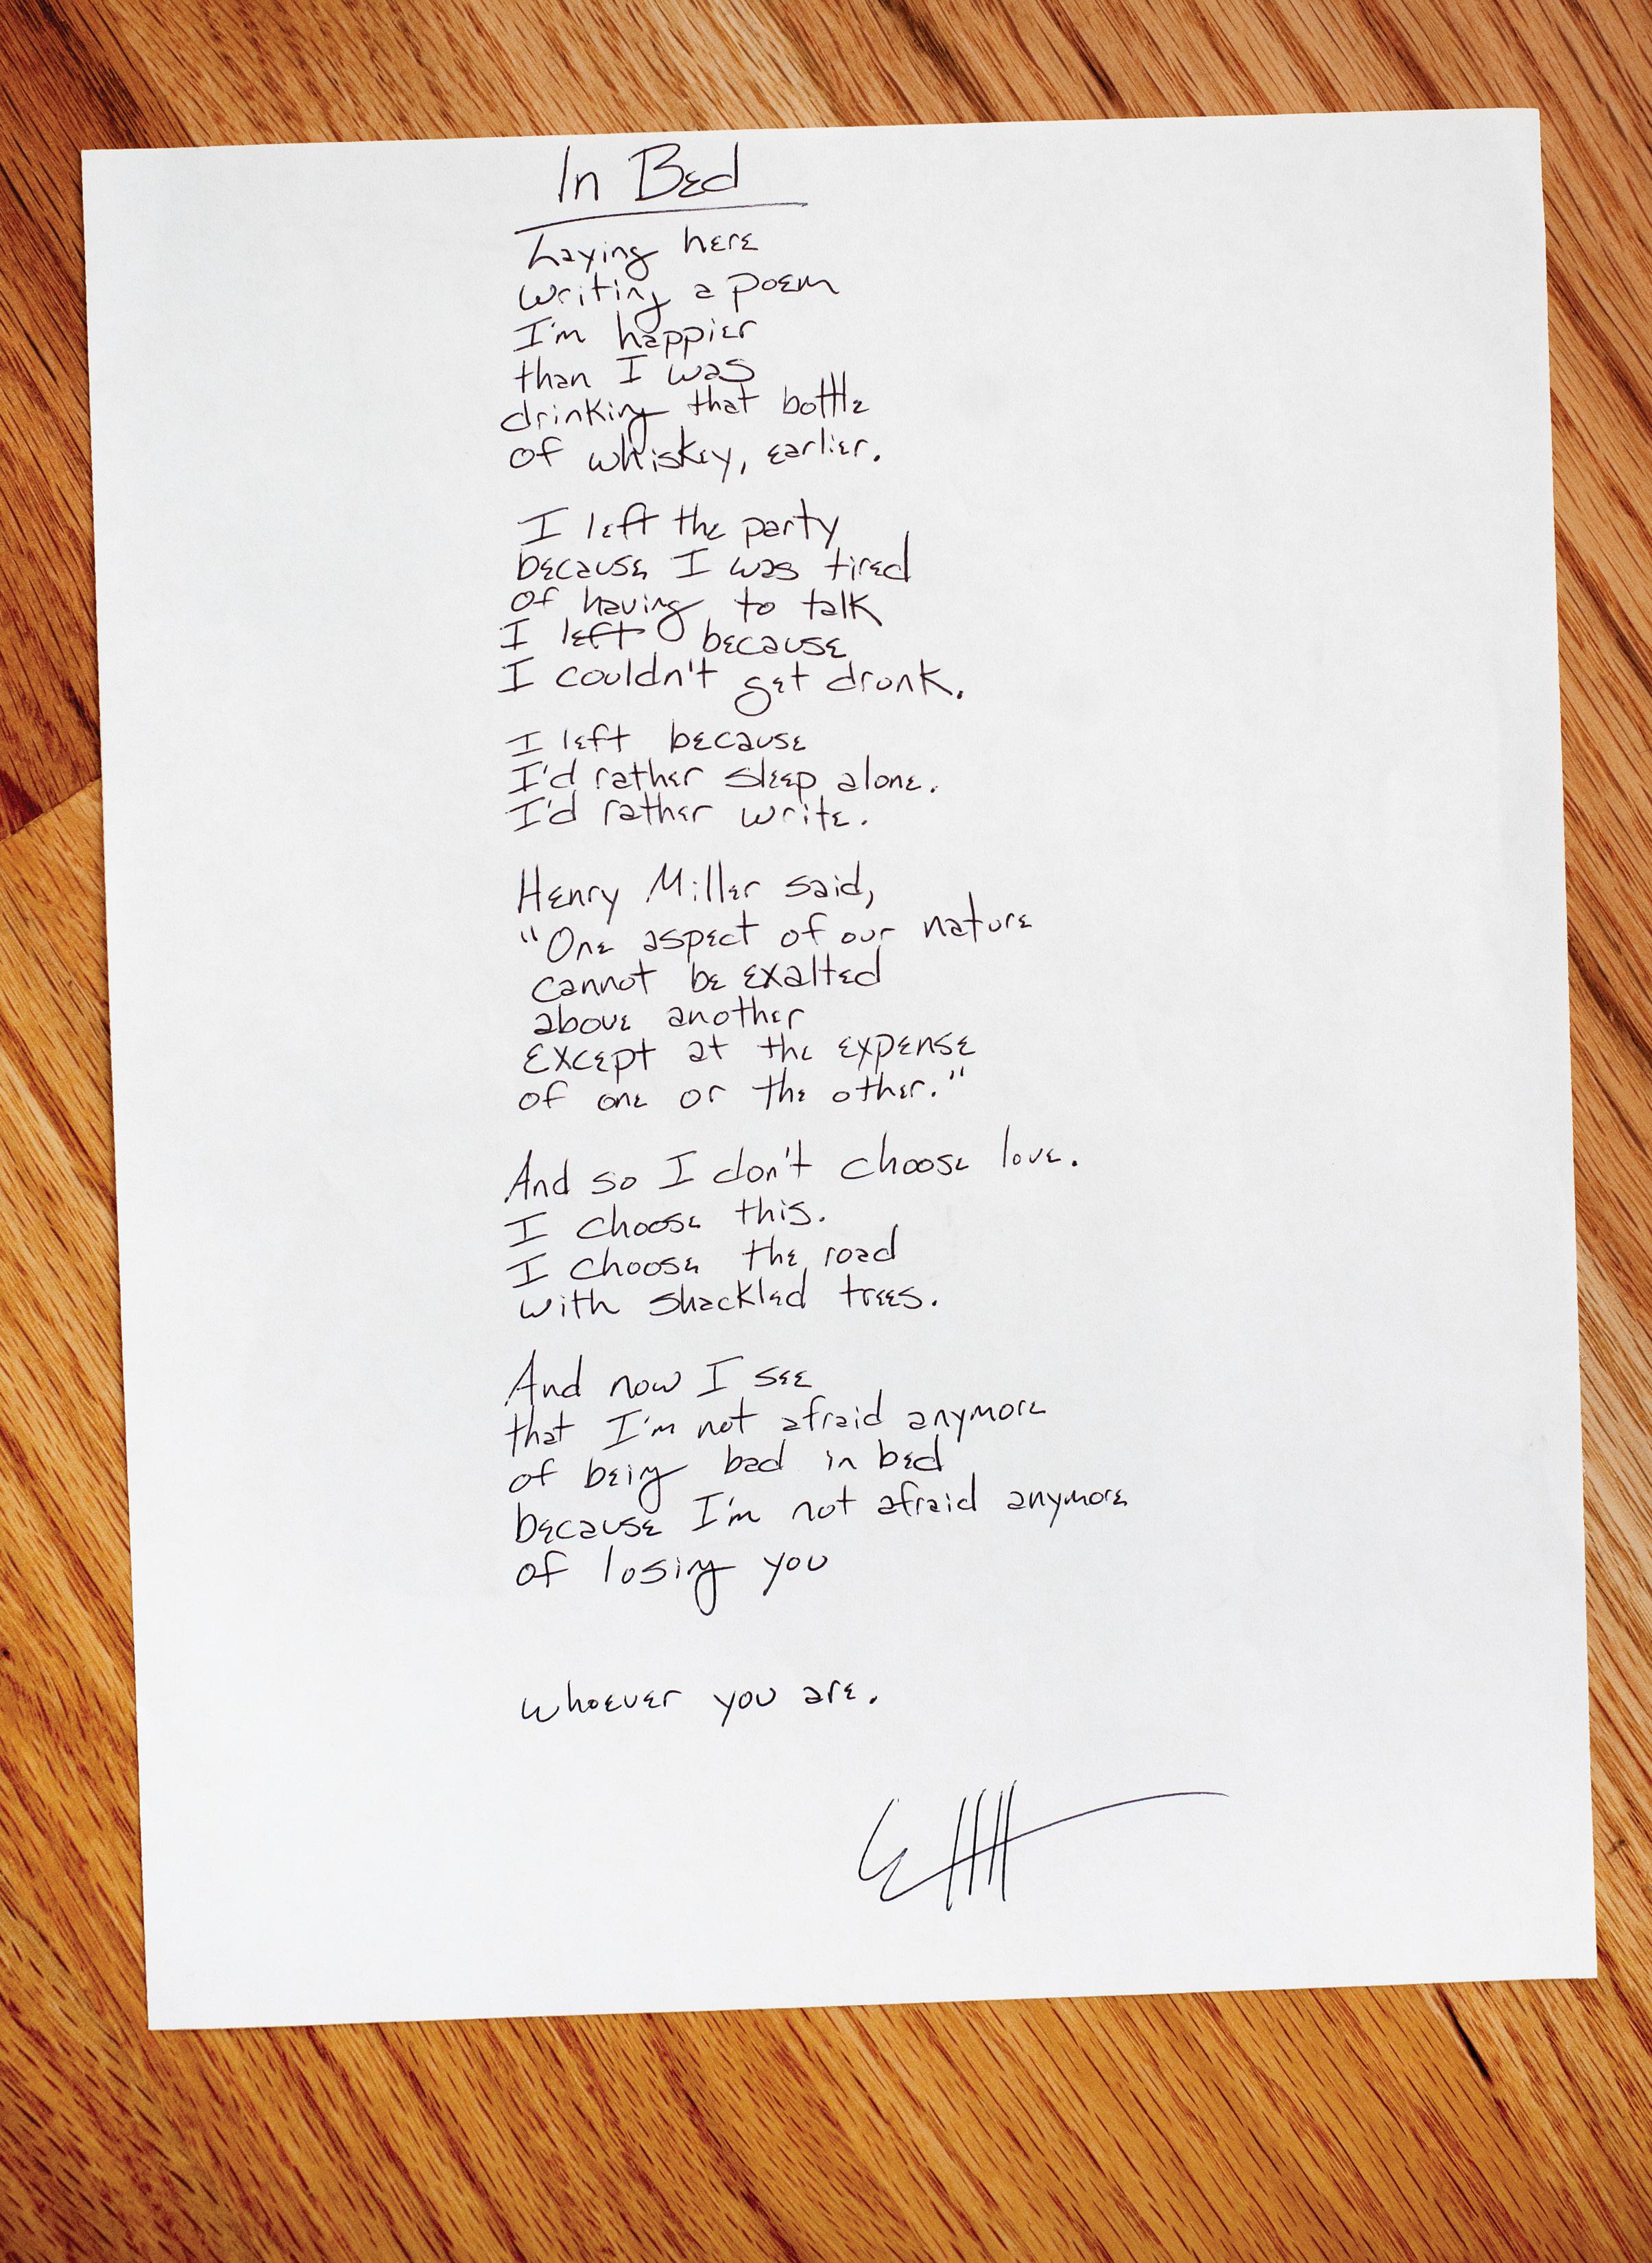 In Bed
Laying here
writing a poem
I'm happier
than I was
drinking that bottle
of whiskey, earlier.
I left the party
because I was tired
of having to talk
I left because
I couldn't get drunk.
I left because
I'd rather sleep alone.
I'd rather write.
Henry Miller said,
"One aspect of our nature
cannot be exalted
above another
except at the expense
of one or the other."
And so I don't choose love.
I choose this.
I choose the road
with shackled trees.
And now I see
that I'm not afraid anymore
of being bad in bed
because I'm not afraid anymore
of losing you
whoever you are.